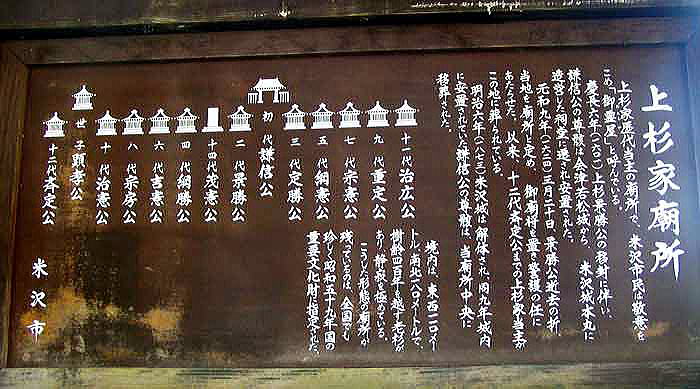 上杉家廟所
上杉家歴代当主の廟所で、米沢市民は敬意を
こめ「御霊屋」と呼んでいる。
慶長六年(一六〇一)上杉景勝公の移封に伴い、
謙信公の尊骸は会津若松城から 米沢城本丸に
造営した祠堂に遷され安置された。
元和九年(一六二三)三月二十日 景勝公逝去の折
当地を廟所と定め、御廟将を置き警護の任に
あたらせた。以来、十二代斉定公までの上杉家当主が
この地に葬られている。
明治六年(一八七三)米沢城は解体され、同九年城内
に安置されていた謙信公の尊骸は、当廟所中央に
移葬された。
境内は、東西一二〇メー
トル、南北一八〇メートルで、
樹齢四百年を越す老杉が
あり、静寂を極めている。
こうした形態の廟所が
残っているのは、全国でも
珍らしく昭和五十九年国の
重要文化財に指定された。
十一代 治広公
九代 重定公
七代 宗憲公
五代 綱憲公
三代 定勝公
初代 謙信公
二代 景勝公
十四代 茂憲公
四代 綱勝公
六代 吉憲公
八代 宗房公
十代 治憲公
世子 顕孝公
十二代 斉定公
米沢市